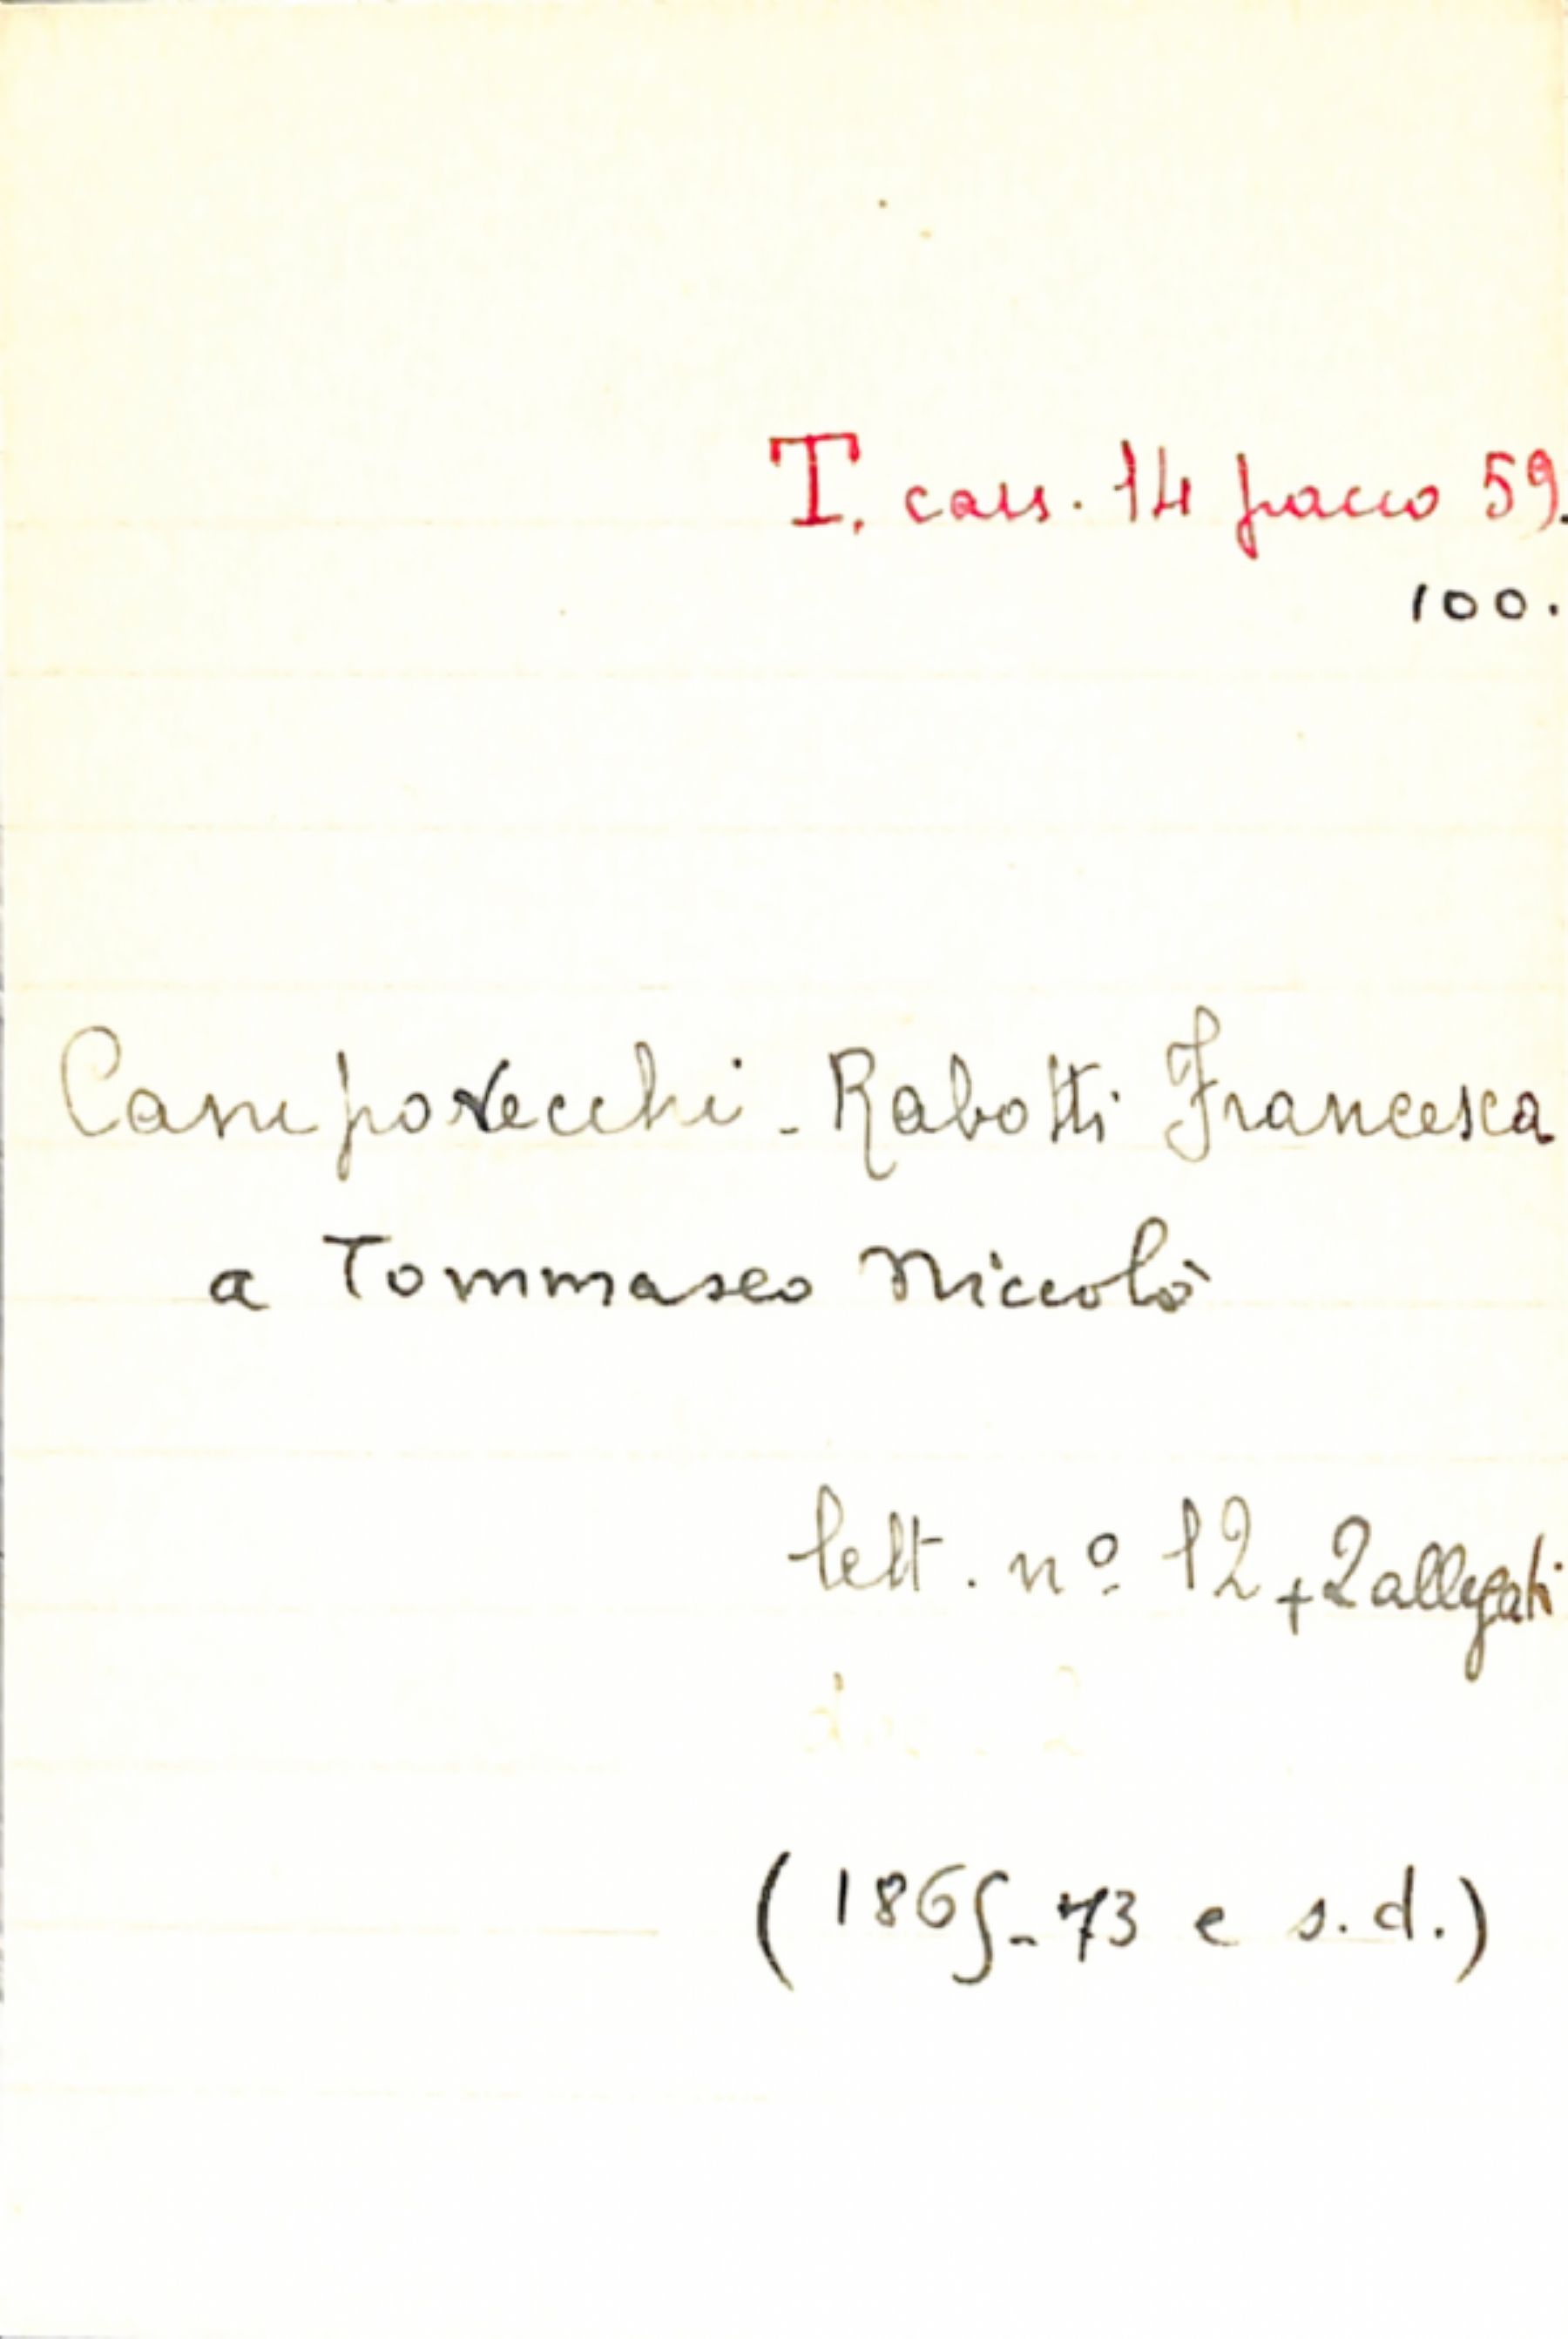 T. cass. 14 pacco 59.
100.
Campovecchi - Rabotti Francesca
a Tommaseo Niccolò
lett. nº 12 + 2 allegati
(1865-73 e s.d.)